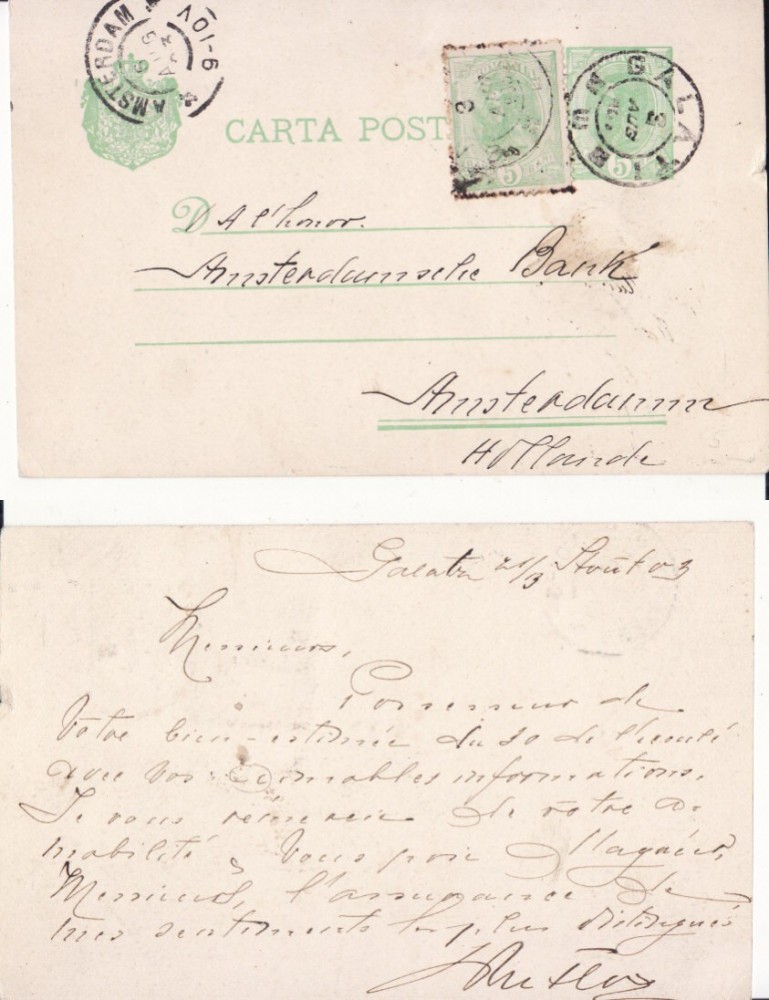 AMSTERDAM
6 AUG
6-10V
CARTA POST
GALATI
3 AUG
5
5
D A l'honor.
Amsterdamsche Bank
Amsterdamm
Hollande
Galatz 21/3 Août 03
Messieurs,
Possesseur de
Votre bien-estimée du 30 de l'écoulé
avec vos aimables informations.
Je vous remercie de votre a
mabilité, Vous prie d'agréer,
Messieurs, l'assurance de
mes sentiments les plus distingués